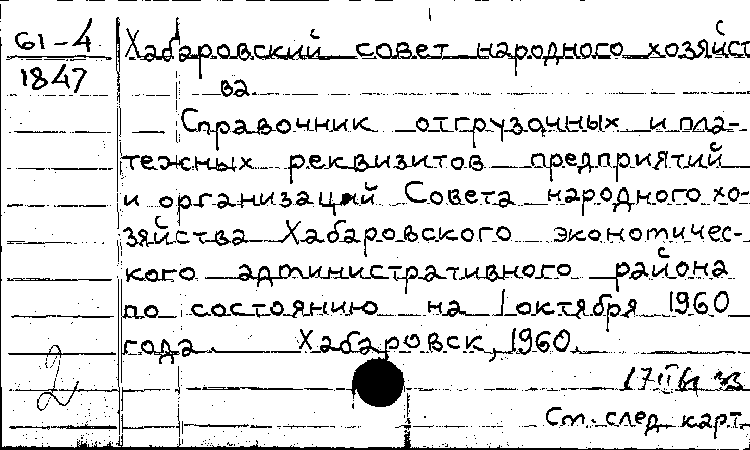 61-4
1847
Хабаровский совет народного хозяйст
ва.
Справочник отгрузочных и пла-
тежных реквизитов предприятий
и организаций Совета народного хо-
зяйства Хабаровского экономичес-
кого административного района
по состоянию на 1 октября 1960
года. Хабаровск, 1960.
2
См. след. карт.